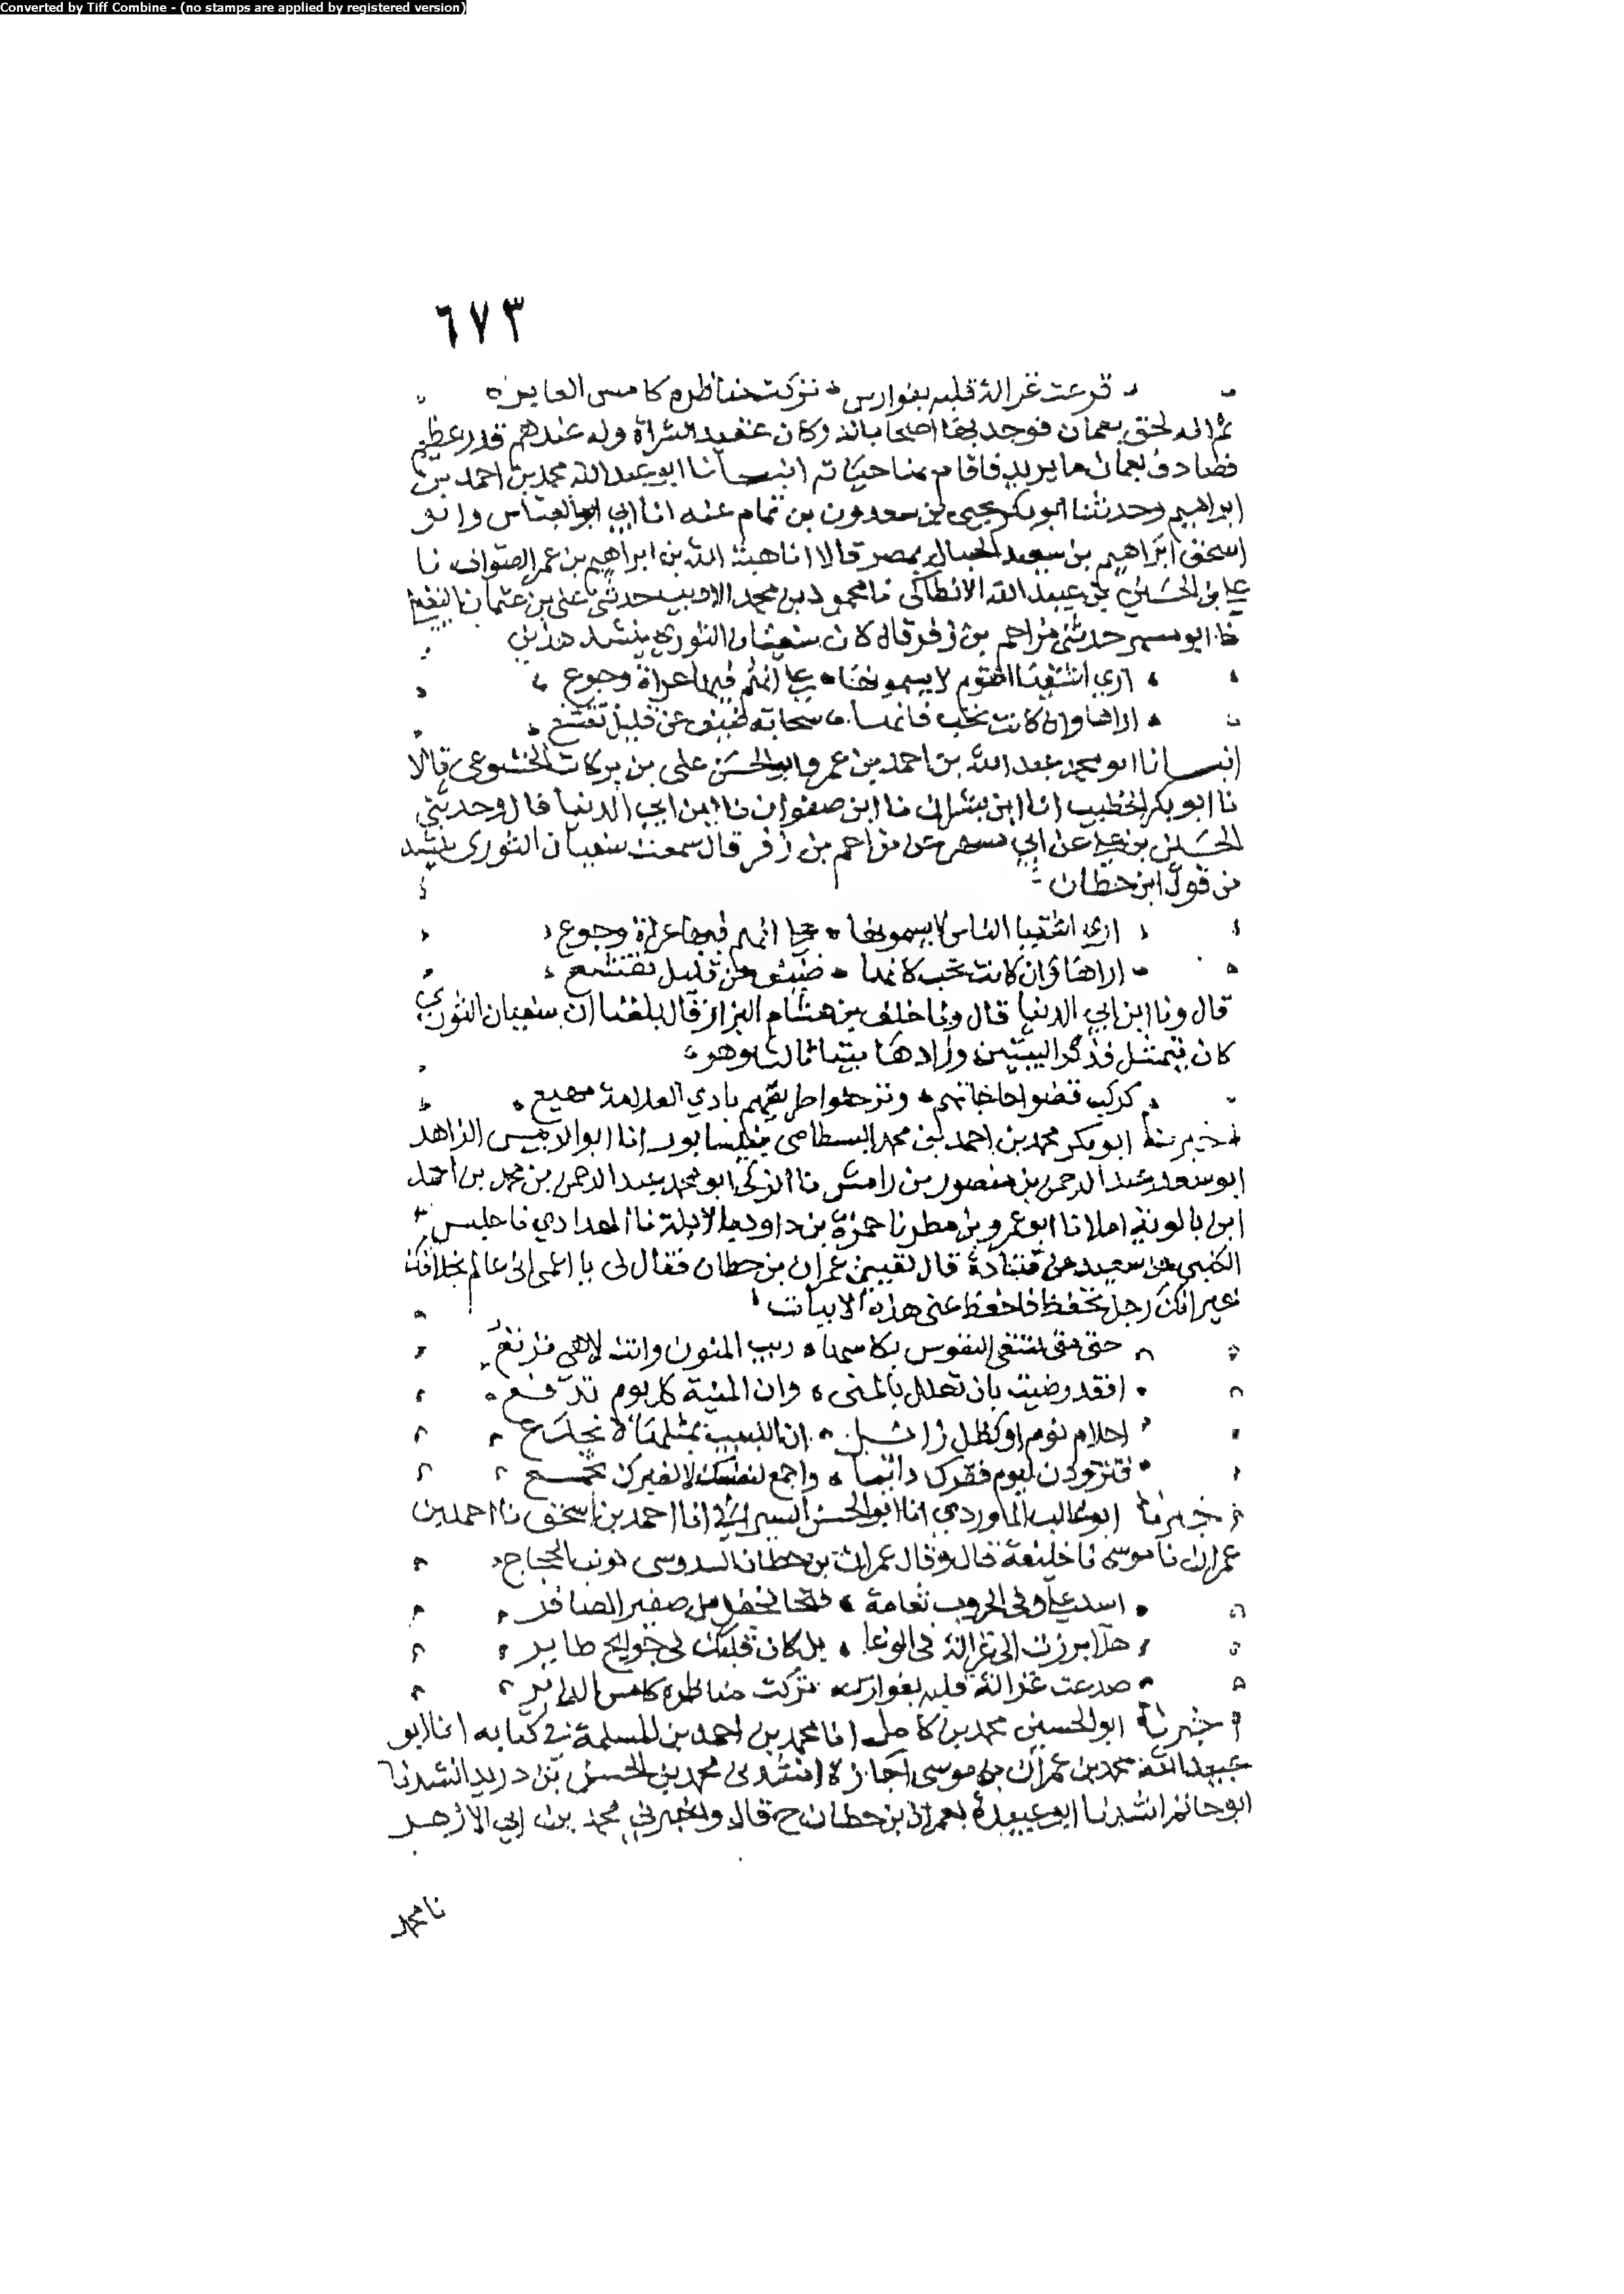 Converted by Tiff Combine - (no stamps are applied by registered version)
٦٧٣
قرعت غزالة قلبه بفوارس تركت مناظره كامس الغابره
ثم انه لحق بعمان فوجد بها اصحابا له وكان عنقيد الشراة وله عندهم قدر عظيم
فصادف بعمان ما يريد فاقام بها حياته انبسأنا ابو عبد الله محمد بن احمد بن
ابراهيم وحدثنا ابو بكر يحيى بن سعدون بن تمام عنه انا ابي ابو العباس وابو
اسحق ابراهيم بن سعيد الحبال بمصر قالا انا هبة الله بن ابراهيم بن عمر الصواف نا
علي بن الحسين بن عبيد الله الانطاكي نا محمود بن محمد الاديب حدثني علي بن عثمان النفيلي
نا ابو مسهر حدثني مزاحم بن زفر قال كان سفيان الثوري ينشد هذين
ارى اشقياء القوم لا يسمونها على انهم فيها عراة وجوع
اراها وان كانت تحب فانها سحابة صيف عن قليل تقشع
انبسانا ابو محمد عبد الله بن احمد بن عمر وابو الحسن علي بن بركات الخشوعي قالا
نا ابو بكر الخطيب انا ابن بشران نا ابن صفوان نا ابن ابي الدنيا قال وحدثني
الحسين بن علي عن ابي مسهر عن مزاحم بن زفر قال سمعت سفيان الثوري ينشد
من قول ابن حطان
ارى اشقيا الناس لا يسمونها على انهم فيها عراة وجوع
اراها وان كانت تحب كانها صيف عن قليل تقشع
قال ونا ابن ابي الدنيا قال ونا خلف بن هشام البزاز قال بلغنا ان سفيان الثوري
كان يتمثل فذكر البيتين وزادها بيتا ثالثا وهو
كركب قضوا حاجاتهم وترحلوا طريقهم بادي العلامة مهيع
اخبرنا ابو بكر محمد بن احمد بن محمد البسطامي بنيسابور انا ابو الرئيس الزاهد
ابو سعد عبد الرحمن بن منصور بن رامش نا الزكي ابو محمد عبد الرحمن بن محمد بن احمد
ابن بالويه املا نا ابو عمرو بن مطر نا حمزة بن داود بالابلة نا الهدادي نا حلبس
الكلبي عن سعيد عن قتادة قال لقيني عمران بن حطان فقال لي يا اعمى اني عالم بخلافك
غير انك رجل تحفظ فاحفظ عني هذه الابيات
حتى متى تسقى النفوس بكاسها ريب المنون وانت لاهي ترتع
افقد رضيت بان تعلل بالمنى وان المنية كل يوم تدفع
احلام نوم او كظل زائل ان اللبيب بمثلها لا يخدع
فتزودن ليوم فقرك دائبا واجمع لنفسك لا لغيرك تجمع
اخبرنا ابو غالب الماوردي انا ابو الحسن السيرافي انا احمد بن اسحق نا احمد بن
عمران نا موسى نا خليفة قال وقال عمران بن حطان السدوسي يونب الحجاج
اسد علي وفي الحروب نعامة فتخا تجفل من صفير الصافر
هلا برزت الى غزالة في الوغا بل كان قلبك في جوانح طاير
صدعت غزالة قلبه بفوارس تركت مناظره كامس الدابر
اخبرنا ابو الحسين محمد بن كامل انا محمد بن احمد بن المسلمة في كتابه انا ابو
عبيد الله محمد بن عمران بن موسى اجازة انشدني محمد بن الحسن بن دريد انشدنا
ابو حاتم انشدنا ابو عبيدة لعمران بن حطان ح قال واخبرني محمد بن ابي الازهر
نا محمد